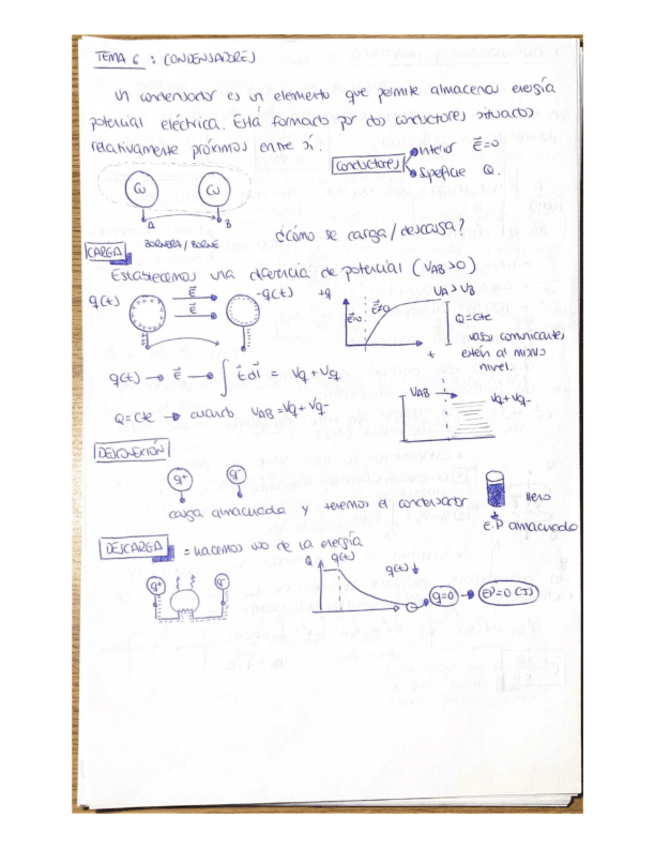 TEMA 6 : CONDENSADORES
Un condensador es un elemento que permite almacenar energía
potencial eléctrica. Está formado por dos conductores situados
relativamente próximos entre sí.
Conductores
Interior E⃗=0
Superficie Q.
Cu Cu
A B
BORNERA / BORNE
¿Cómo se carga/descarga?
CARGA
Establecemos una diferencia de potencial (VAB>0)
q(t) E⃗ E⃗ -q(t)
+q E⃗=0 E⃗≠0 UA>UB
Q=cte
t
vasos comunicantes
estén al mismo
nivel.
q(t) → E⃗ → ∫ E⃗ dl⃗ = Vq + Vq
Q=cte → cuando VAB = Vq+ Vq-
VAB → Vq+ Vq-
DESCONEXIÓN
q+ q-
carga almacenada y tenemos el condensador
lleno
E.P almacenada
DESCARGA = hacemos uso de la energía
q+ q-
Q q(t) q(t) ↓
q=0 → EP=0 (J)